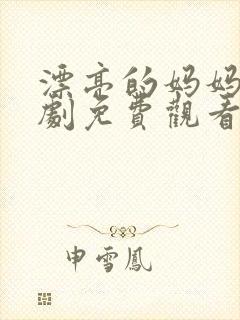 漂亮的妈妈
劇免費觀看
申雪鳳